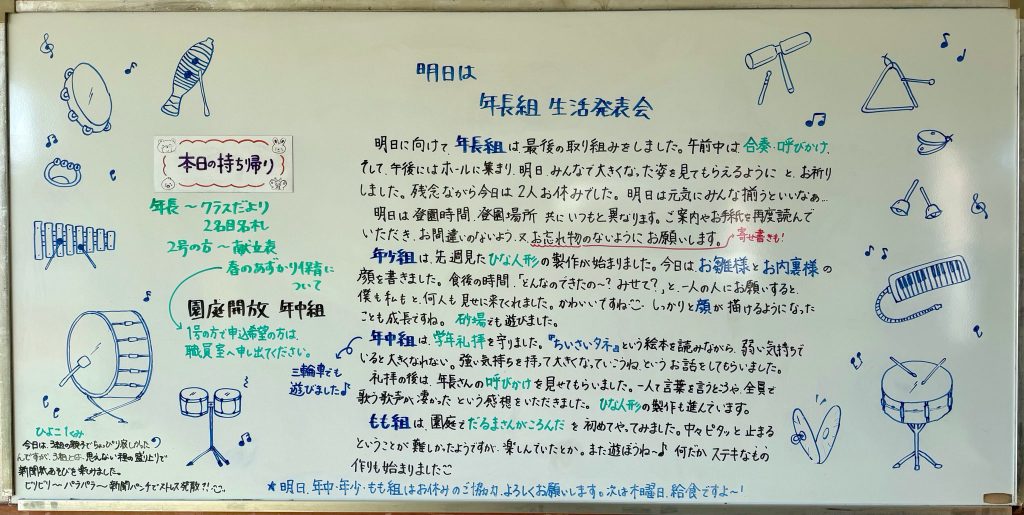 明日は
年長組 生活発表会
明日に向けて、年長組は、最後の取り組みをしました。午前中は、合奏・呼びかけ、
そして、午後にはホールに集まり、明日、みんなで大きくなった姿を見てもらえるように と、お祈り
しました。残念ながら今日は、2人お休みでした。明日は元気にみんな揃うといいなぁ…
明日は、登園時間、登園場所 共に いつもと異なります。ご案内やお手紙を再度読んで
いただき、お間違いのないよう、又、お忘れ物のないように お願いします。
寄せ書きも!
年少組は、先週見たひな人形の製作が始まりました。今日は、お雛様とお内裏様の
顔を書きました。食後の時間、「どんなのできたの〜?みせて?」と、一人の人にお願いすると、
僕も私もと、何人も見せに来てくれました。かわいいですね しっかりと顔が描けるようになった
ことも成長ですね。 砂場でも遊びました。
年中組は、学年礼拝を守りました。『ちいさいタネ』という絵本を読みながら、弱い気持ちで
いると大きくなれない。強い気持ちを持って大きくなっていこうね、というお話をしてもらいました。
礼拝の後は、年長さんの呼びかけを見せてもらいました。一人で言葉を言うところや、全員で
歌う歌声が、凄かったという感想をいただきました。ひな人形の製作も進んでいます。
三輪車でも
遊びました♪
もも組は、園庭でだるまさんがころんだ を 初めてやってみました。中々ピタッと 止まる
ということが 難しかったようですが、楽しんでいたとか。また遊ぼうね〜♪ 何だか ステキなもの
作りも始まりました
★明日、年中・年少・もも組はお休みのご協力、よろしくお願いします。次は木曜日、給食ですよ〜!
本日の持ち帰り
年長〜クラスだより
2名目名札
2号の方〜献立表
春のあずかり保育に
ついて
園庭開放 年中組
1号の方で申込希望の方は、
職員室へ申し出てください。
ひよこ1ぐみ
今日は、3組の親子でちょっぴり寂しかった
んですが、3組とは、思えない程の盛り上りで
新聞紙あそびを楽しみました。
ビリビリ〜パラパラ〜新聞パンチでストレス発散?!